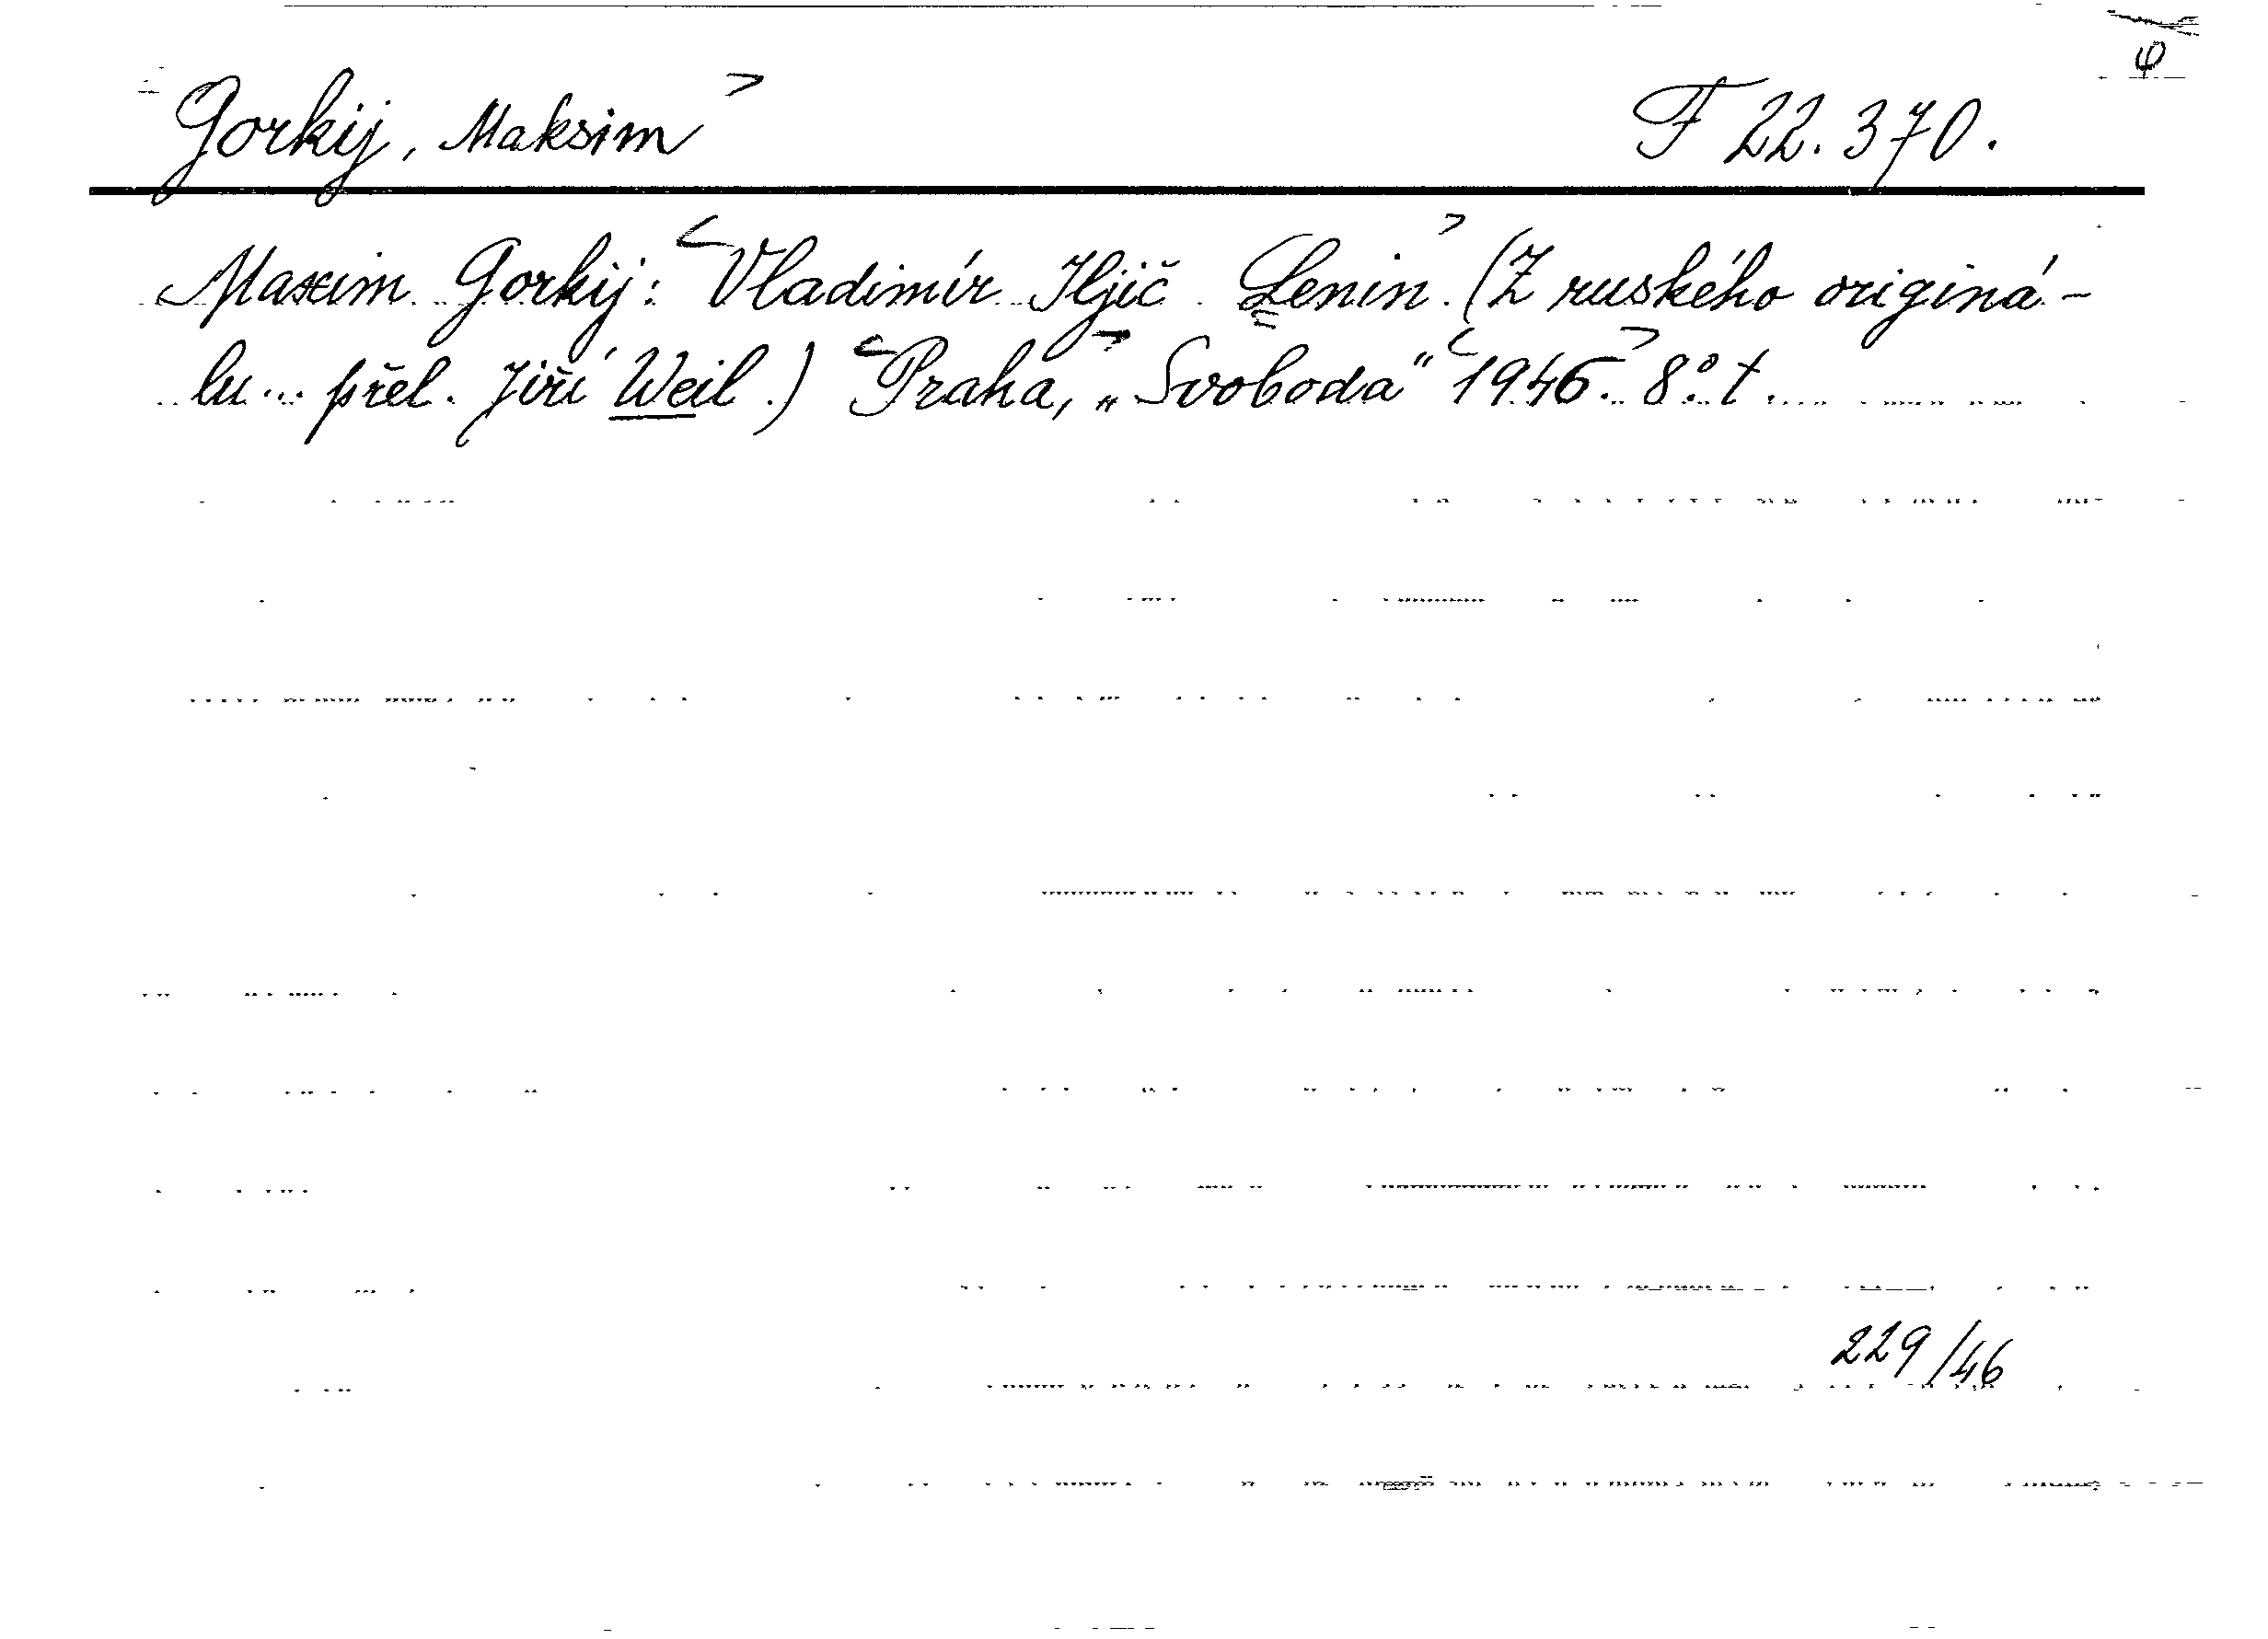 φ
Gorkij, Maksim F 22.370.
Maxim Gorkij: Vladimír Iljič Lenin. (Z ruského originá-
lu... přel. Jiří Weil.) Praha, „Svoboda" 1946. 8° t.
229/46